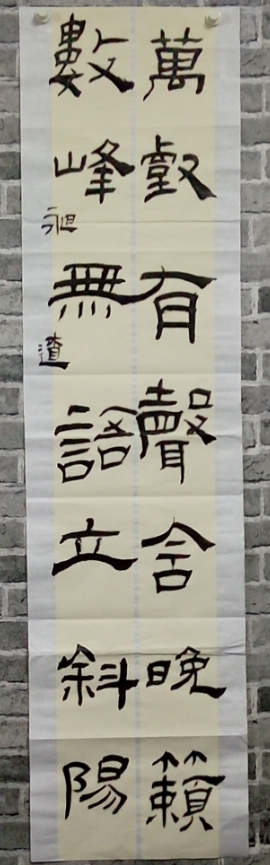 萬壑有聲含晚籟
數峰無語立斜陽